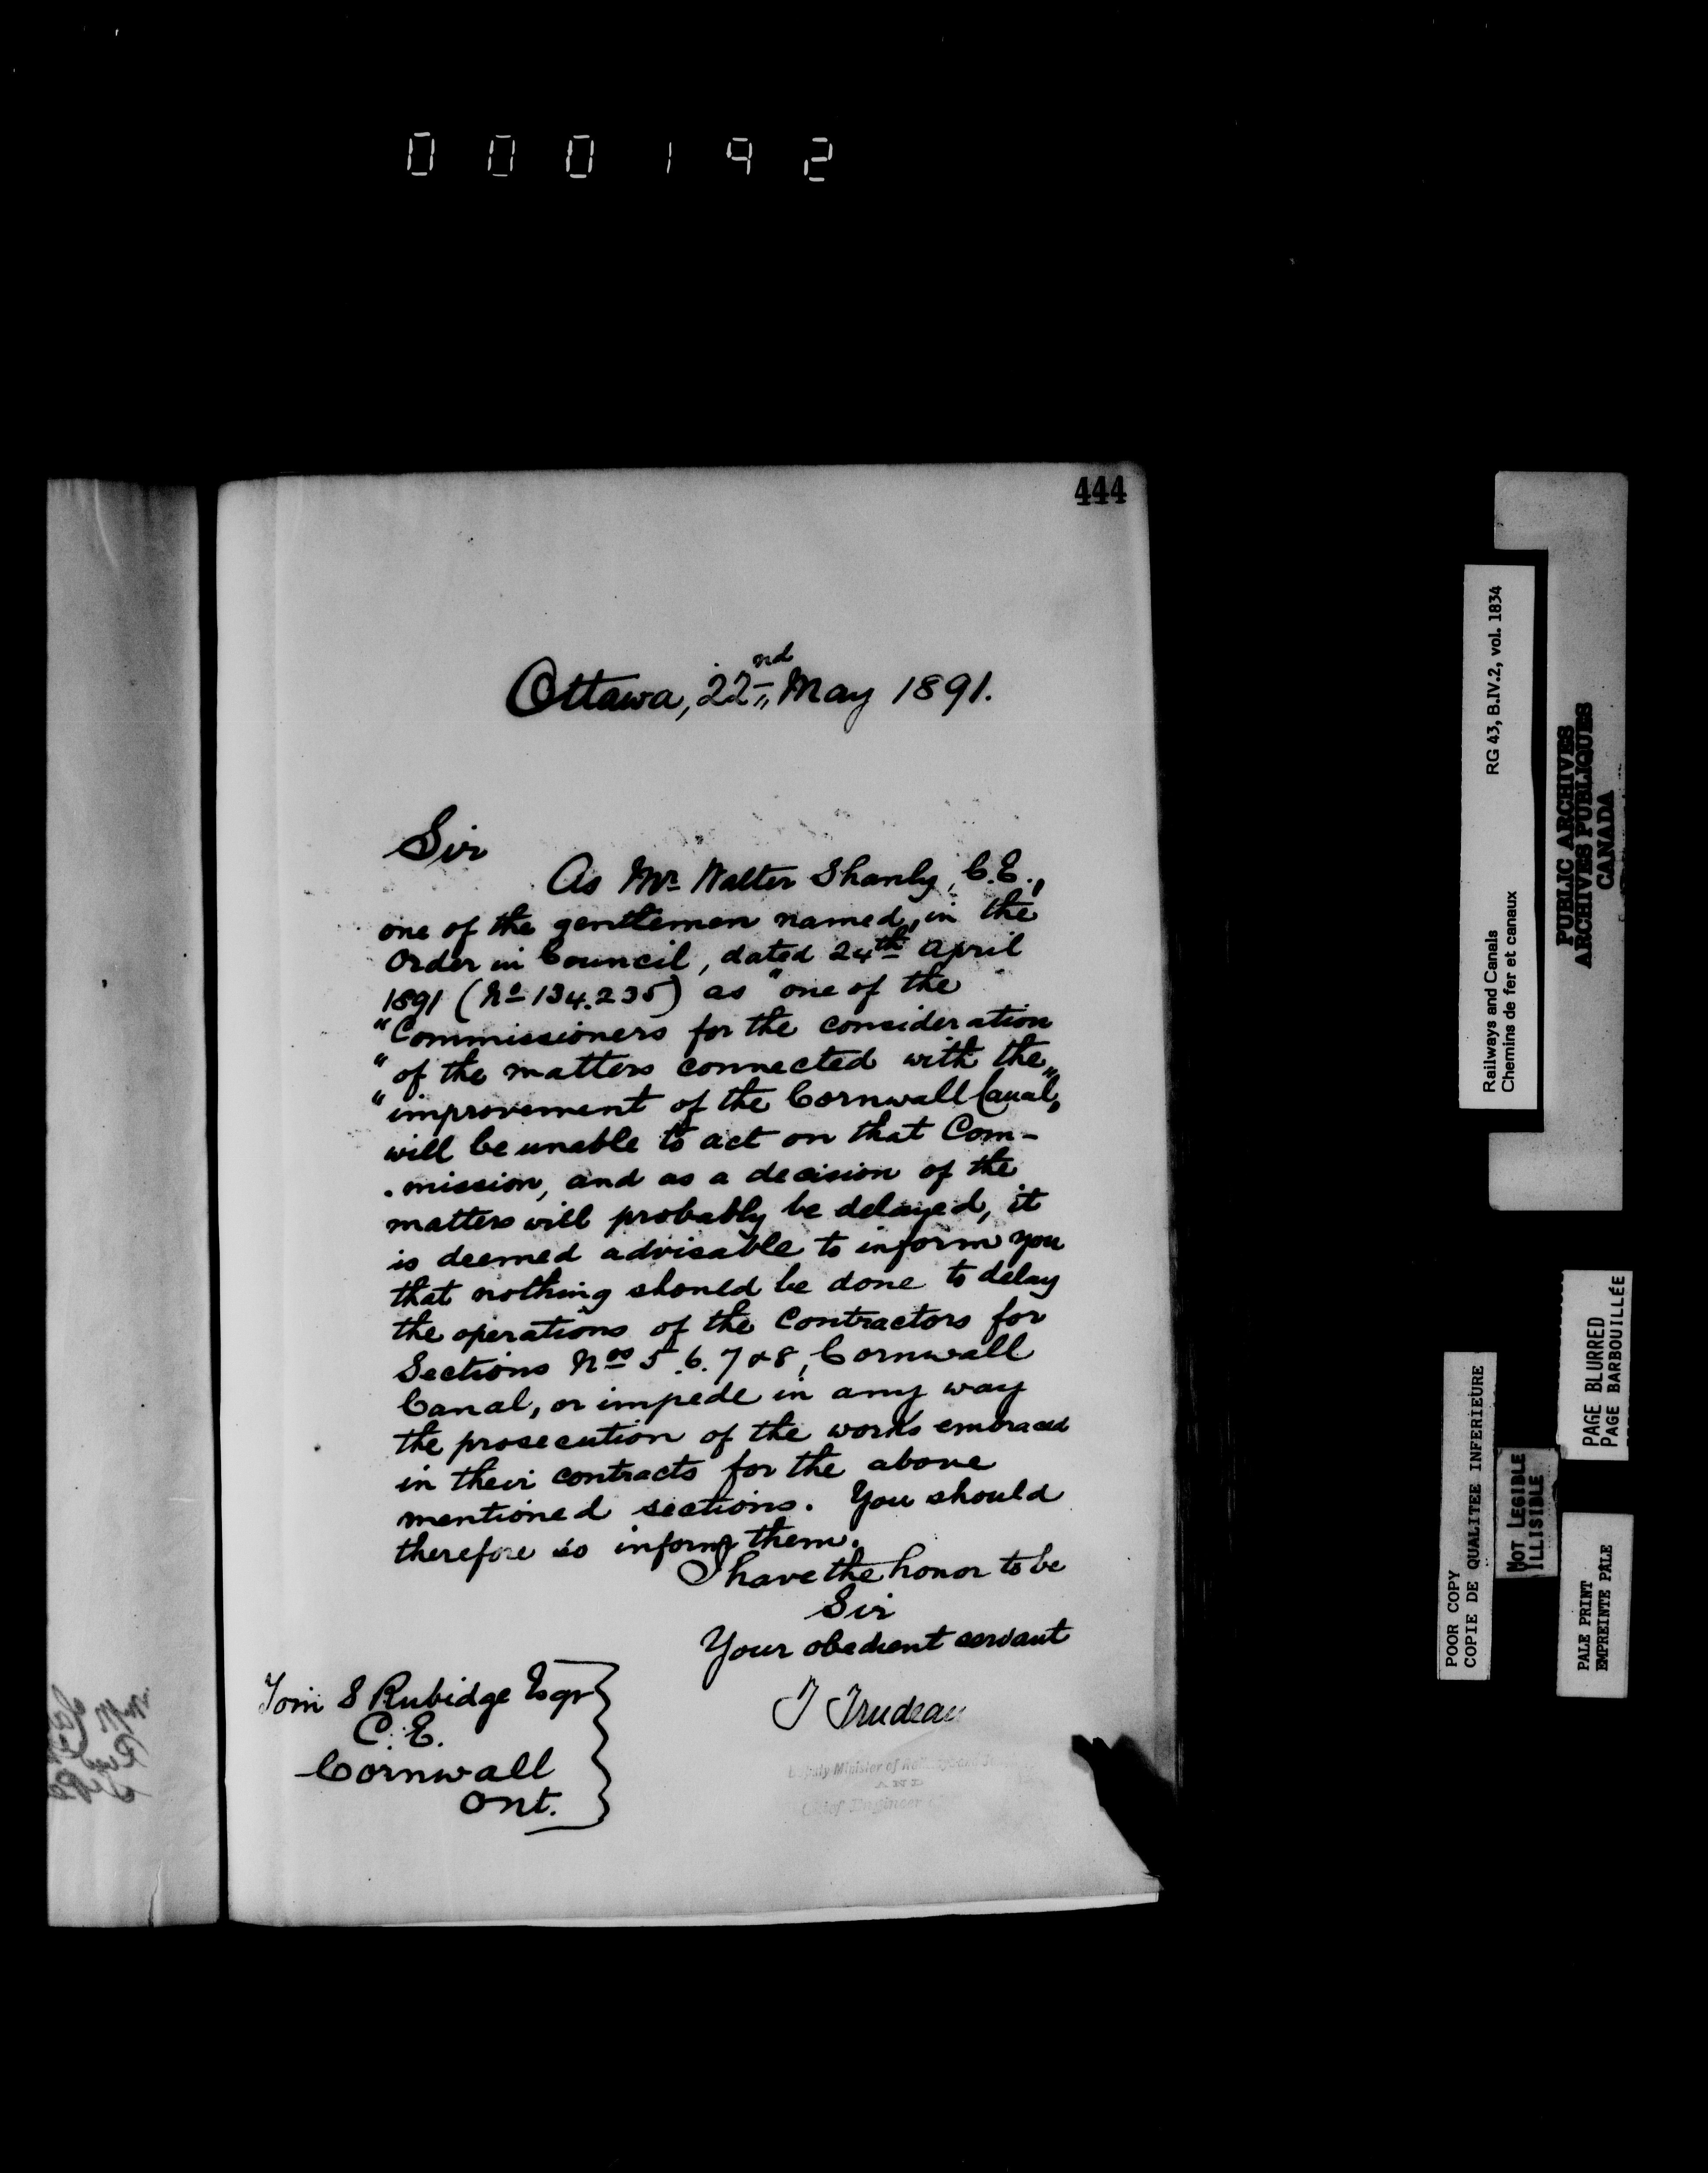 000192
444
Ottawa, 22nd May 1891.
Sir
As Mr Walter Shanly, C.E.,
one of the gentlemen named, in the
Order in Council, dated 24th April
1891 (No 134.235) as "one of the
"Commissioners for the consideration
"of the matters connected with the
"improvement of the Cornwall Canal,"
will be unable to act on that Com-
-mission, and as a decision of the
matters will probably be delayed, it
is deemed advisable to inform you
that nothing should be done to delay
the operations of the Contractors for
Sections Nos 5.6.7 & 8, Cornwall
Canal, or impede in any way
the prosecution of the works embraced
in their contracts for the above
mentioned sections. You should
therefore so inform them.
I have the honor to be
Sir
Your obedient servant
T Trudeau
Deputy Minister of
AND
Chief Engineer
Tom S Rubidge Esqr
C.E.
Cornwall
Ont.
Railways and Canals RG 43, B.IV.2, vol. 1834
Chemins de fer et canaux
PUBLIC ARCHIVES
ARCHIVES PUBLIQUES
CANADA
PAGE BLURRED
PAGE BARBOUILLÉE
POOR COPY
COPIE DE QUALITEE INFERIEURE
NOT LEGIBLE
ILLISIBLE
PALE PRINT
EMPREINTE PALE